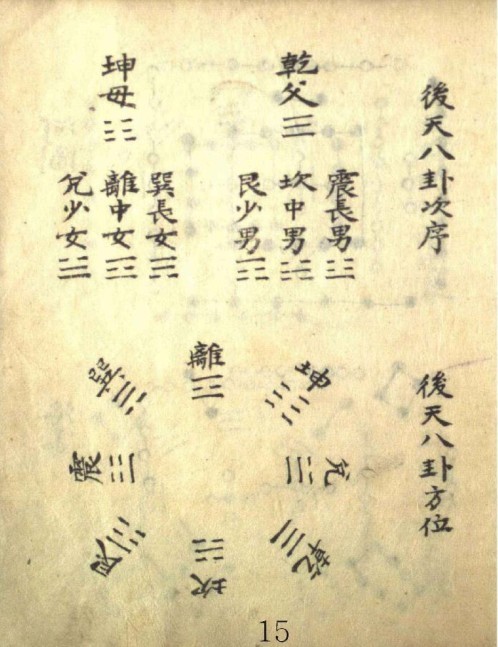 後天八卦次序
乾父☰
震長男☳
坎中男☵
艮少男☶
坤母☷
巽長女☴
離中女☲
兌少女☱
後天八卦方位
離☲
坤☷
兌☱
乾☰
坎☵
艮☶
震☳
巽☴
15